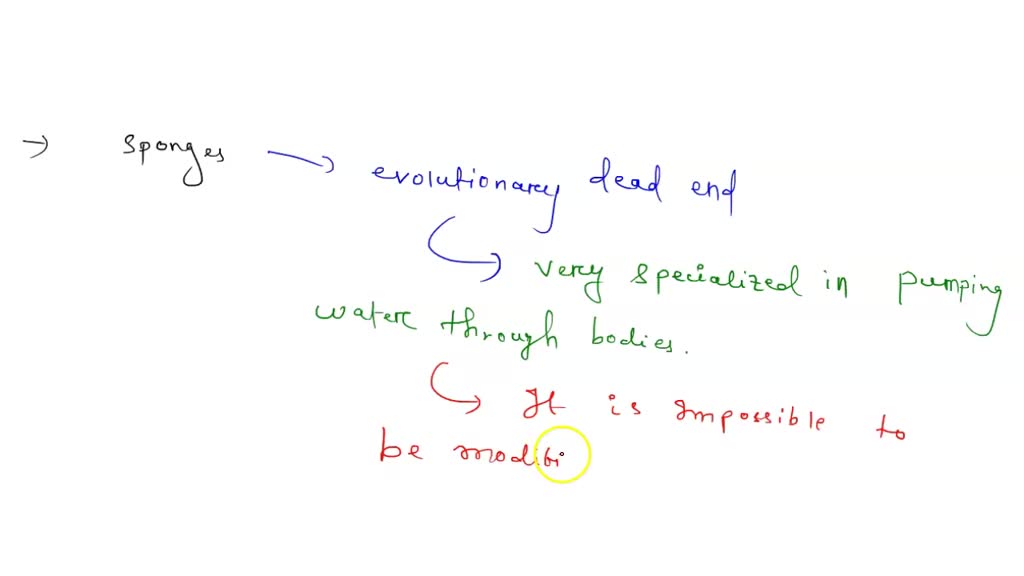 → Sponges → evolutionary dead end
→ very specialized in pumping
water through bodies.
→ It is impossible to
be modifi